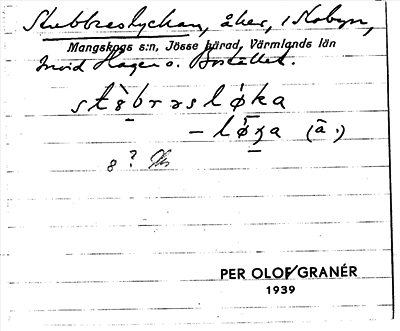 Stubbreslyckan, åker, i Skobyn,
Mangskogs s:n, Jösse härad, Värmlands län
invid Hagen o. Bostället.
stə̀brəslǿka
– løʒa (ä.)
8 ?
PER OLOF GRANÉR
1939